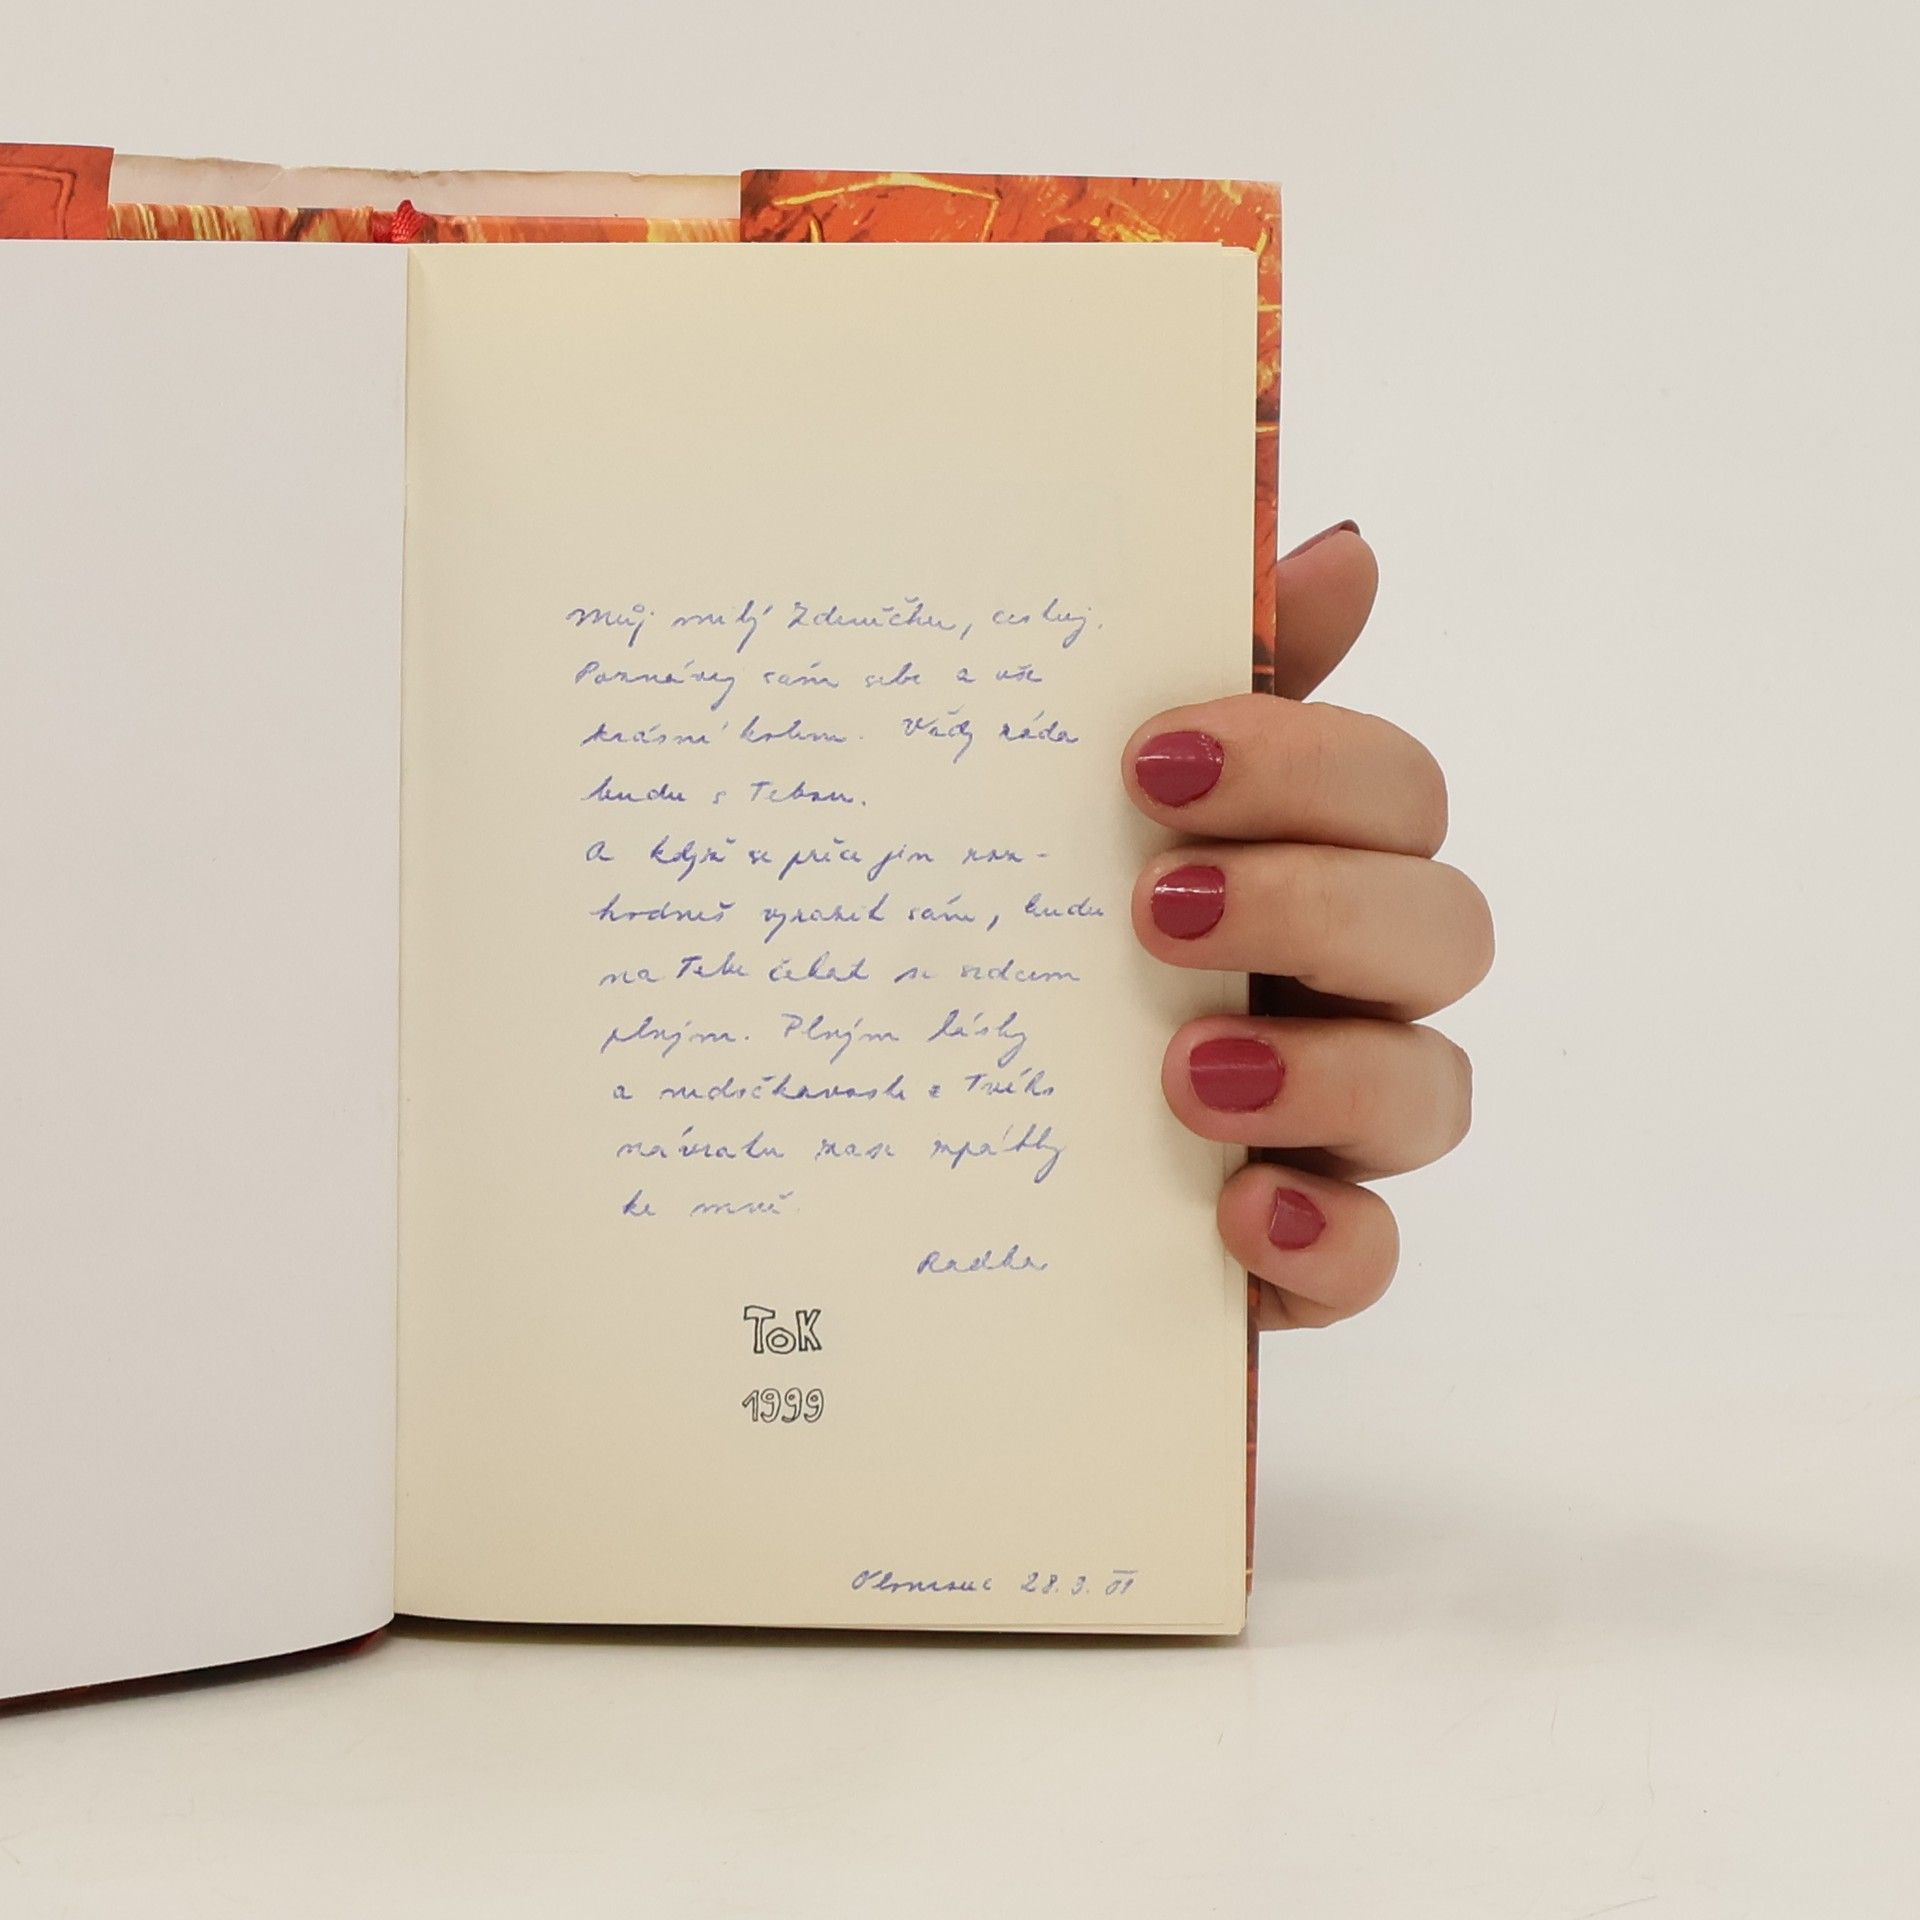 Můj milý Zdeničku, cestuj.
Poznávej sám sebe a vše
krásné kolem. Vždy ráda
budu s Tebou.
A když se přece jen roz-
hodneš vyrazit sám, budu
na Tebe čekat se srdcem
plným. Plným lásky
a nedočkavosti z Tvého
návratu zase zpátky
ke mně.
Radka
ToK
1999
Olomouc 28. 3. 01